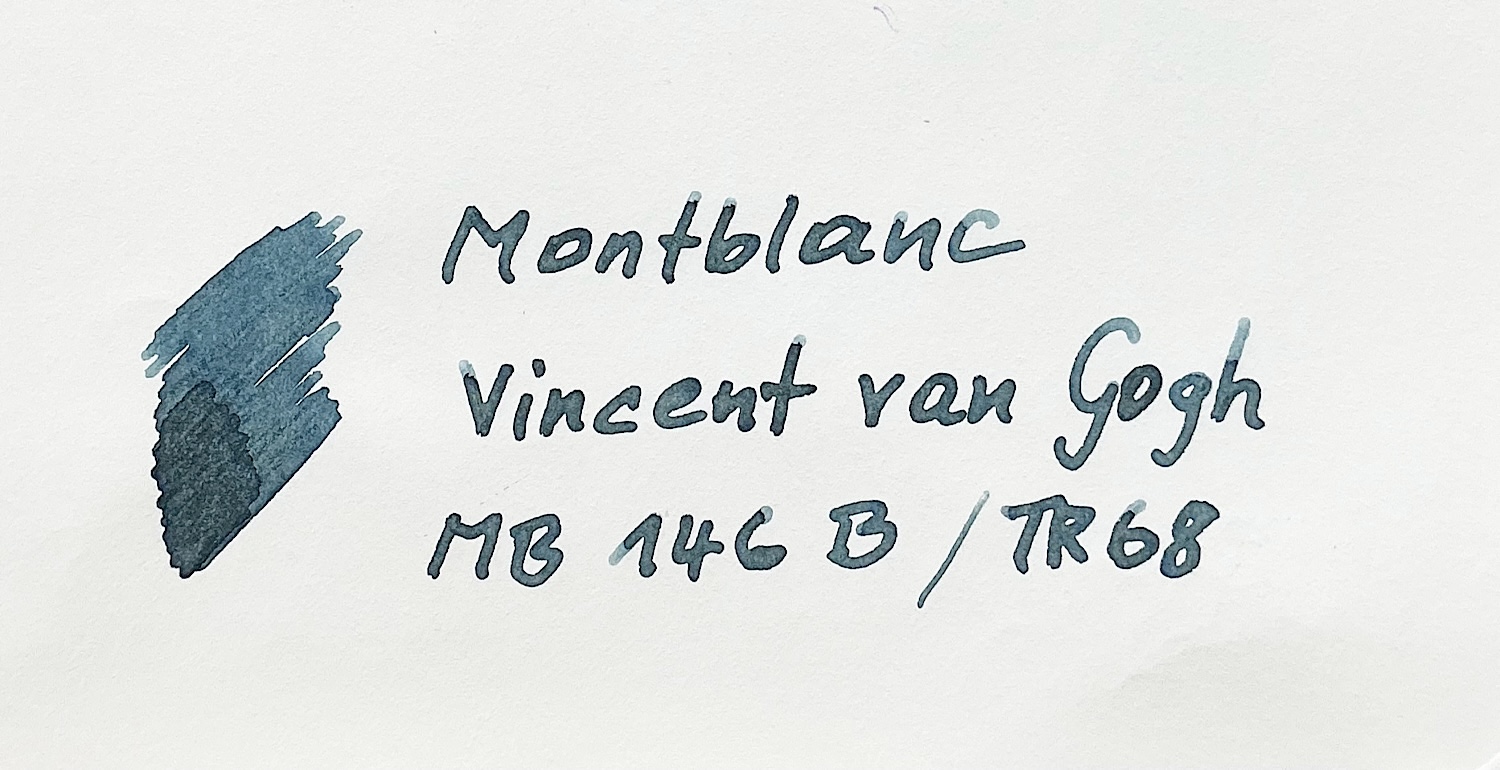 Montblanc
Vincent van Gogh
MB 146 B / TR68